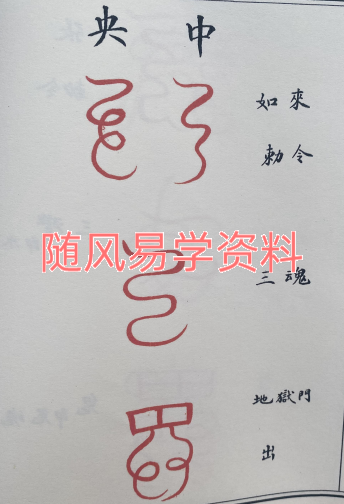 中央
如來
勅令
随风易学资料
三魂
地獄門
出